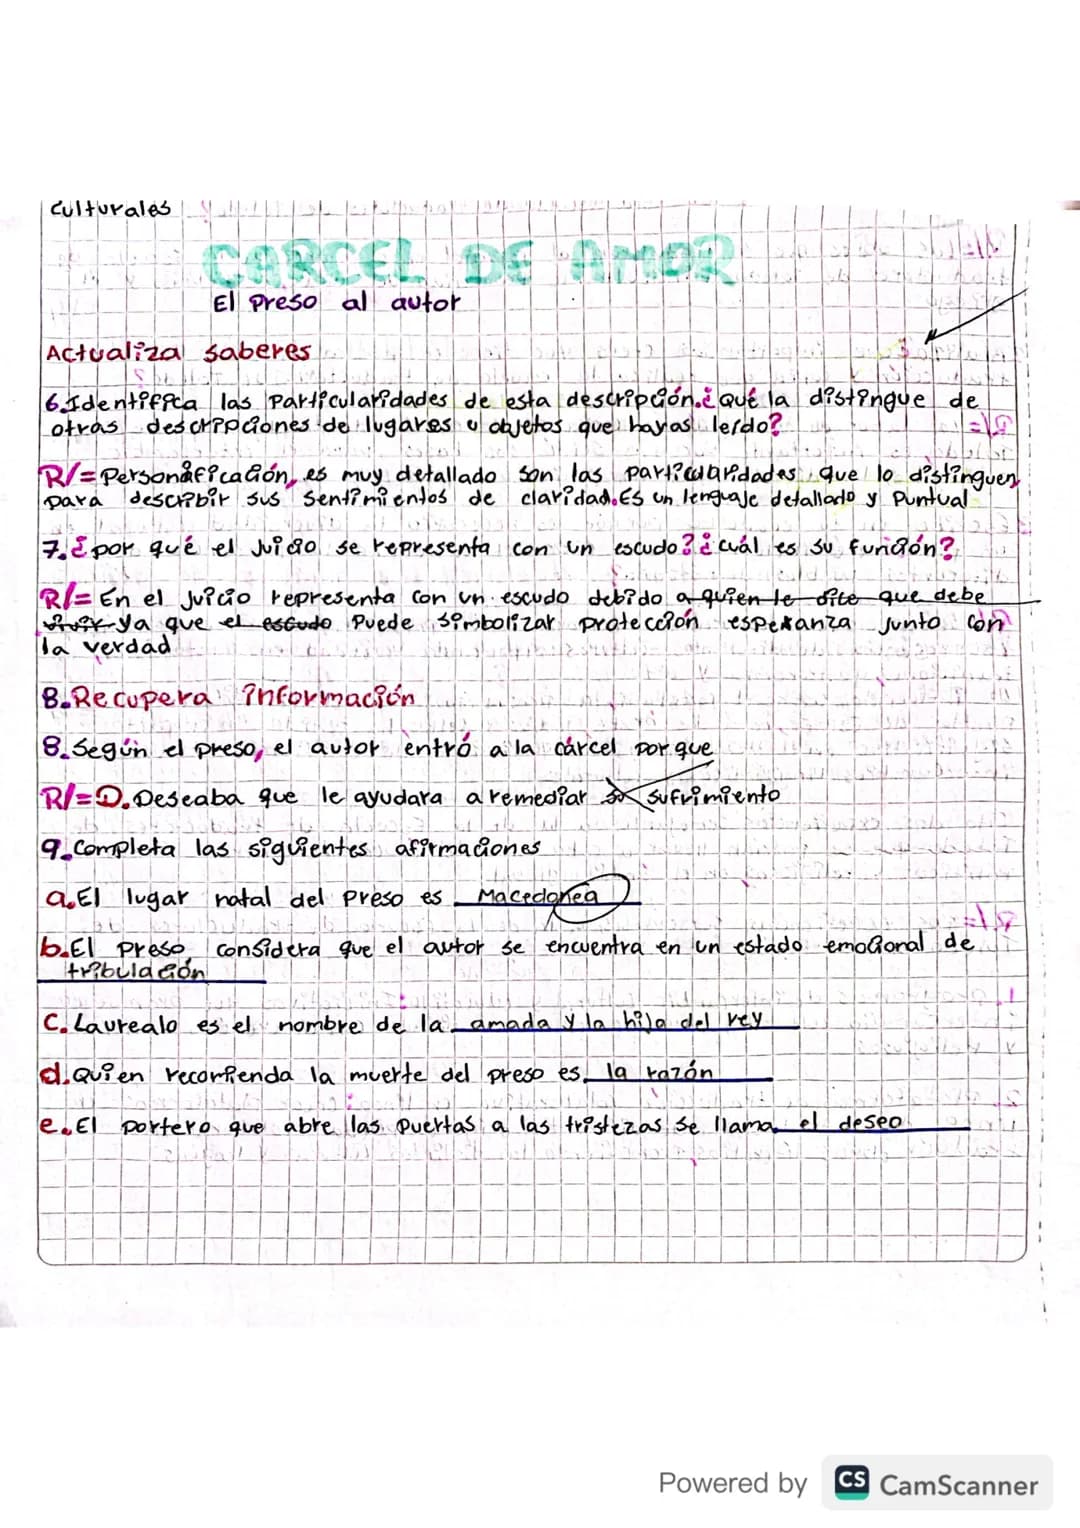 culturales
CARCEL DE AMOR
El preso al autor
Actualiza saberes
6. Identifica las particularidades de esta descripción. ¿Qué la distingue de
otras descripciones de lugares u objetos que hayas leído?
R/= Personificación, es muy detallado son las particularidades que lo distinguen
para describir sus sentimientos de claridad. Es un lenguaje detallado y puntual
7. ¿por qué el Juicio se representa con un escudo? ¿cuál es su función?
R/= En el juicio representa con un escudo debido a quien le dice que debe
vivir ya que el escudo puede simbolizar protección esperanza junto con
la verdad
8. Recupera información
8. Según el preso, el autor entró a la cárcel porque
R/= D. Deseaba que le ayudara a remediar su sufrimiento
9. Completa las siguientes afirmaciones
a. El lugar natal del preso es Macedonea
b. El preso considera que el autor se encuentra en un estado emocional de
tribulación
C. Laurealo es el nombre de la amada y la hija del rey
d. Quien recomienda la muerte del preso es la razón
e. El portero que abre las puertas a las tristezas se llama el deseo
Powered by CS CamScanner